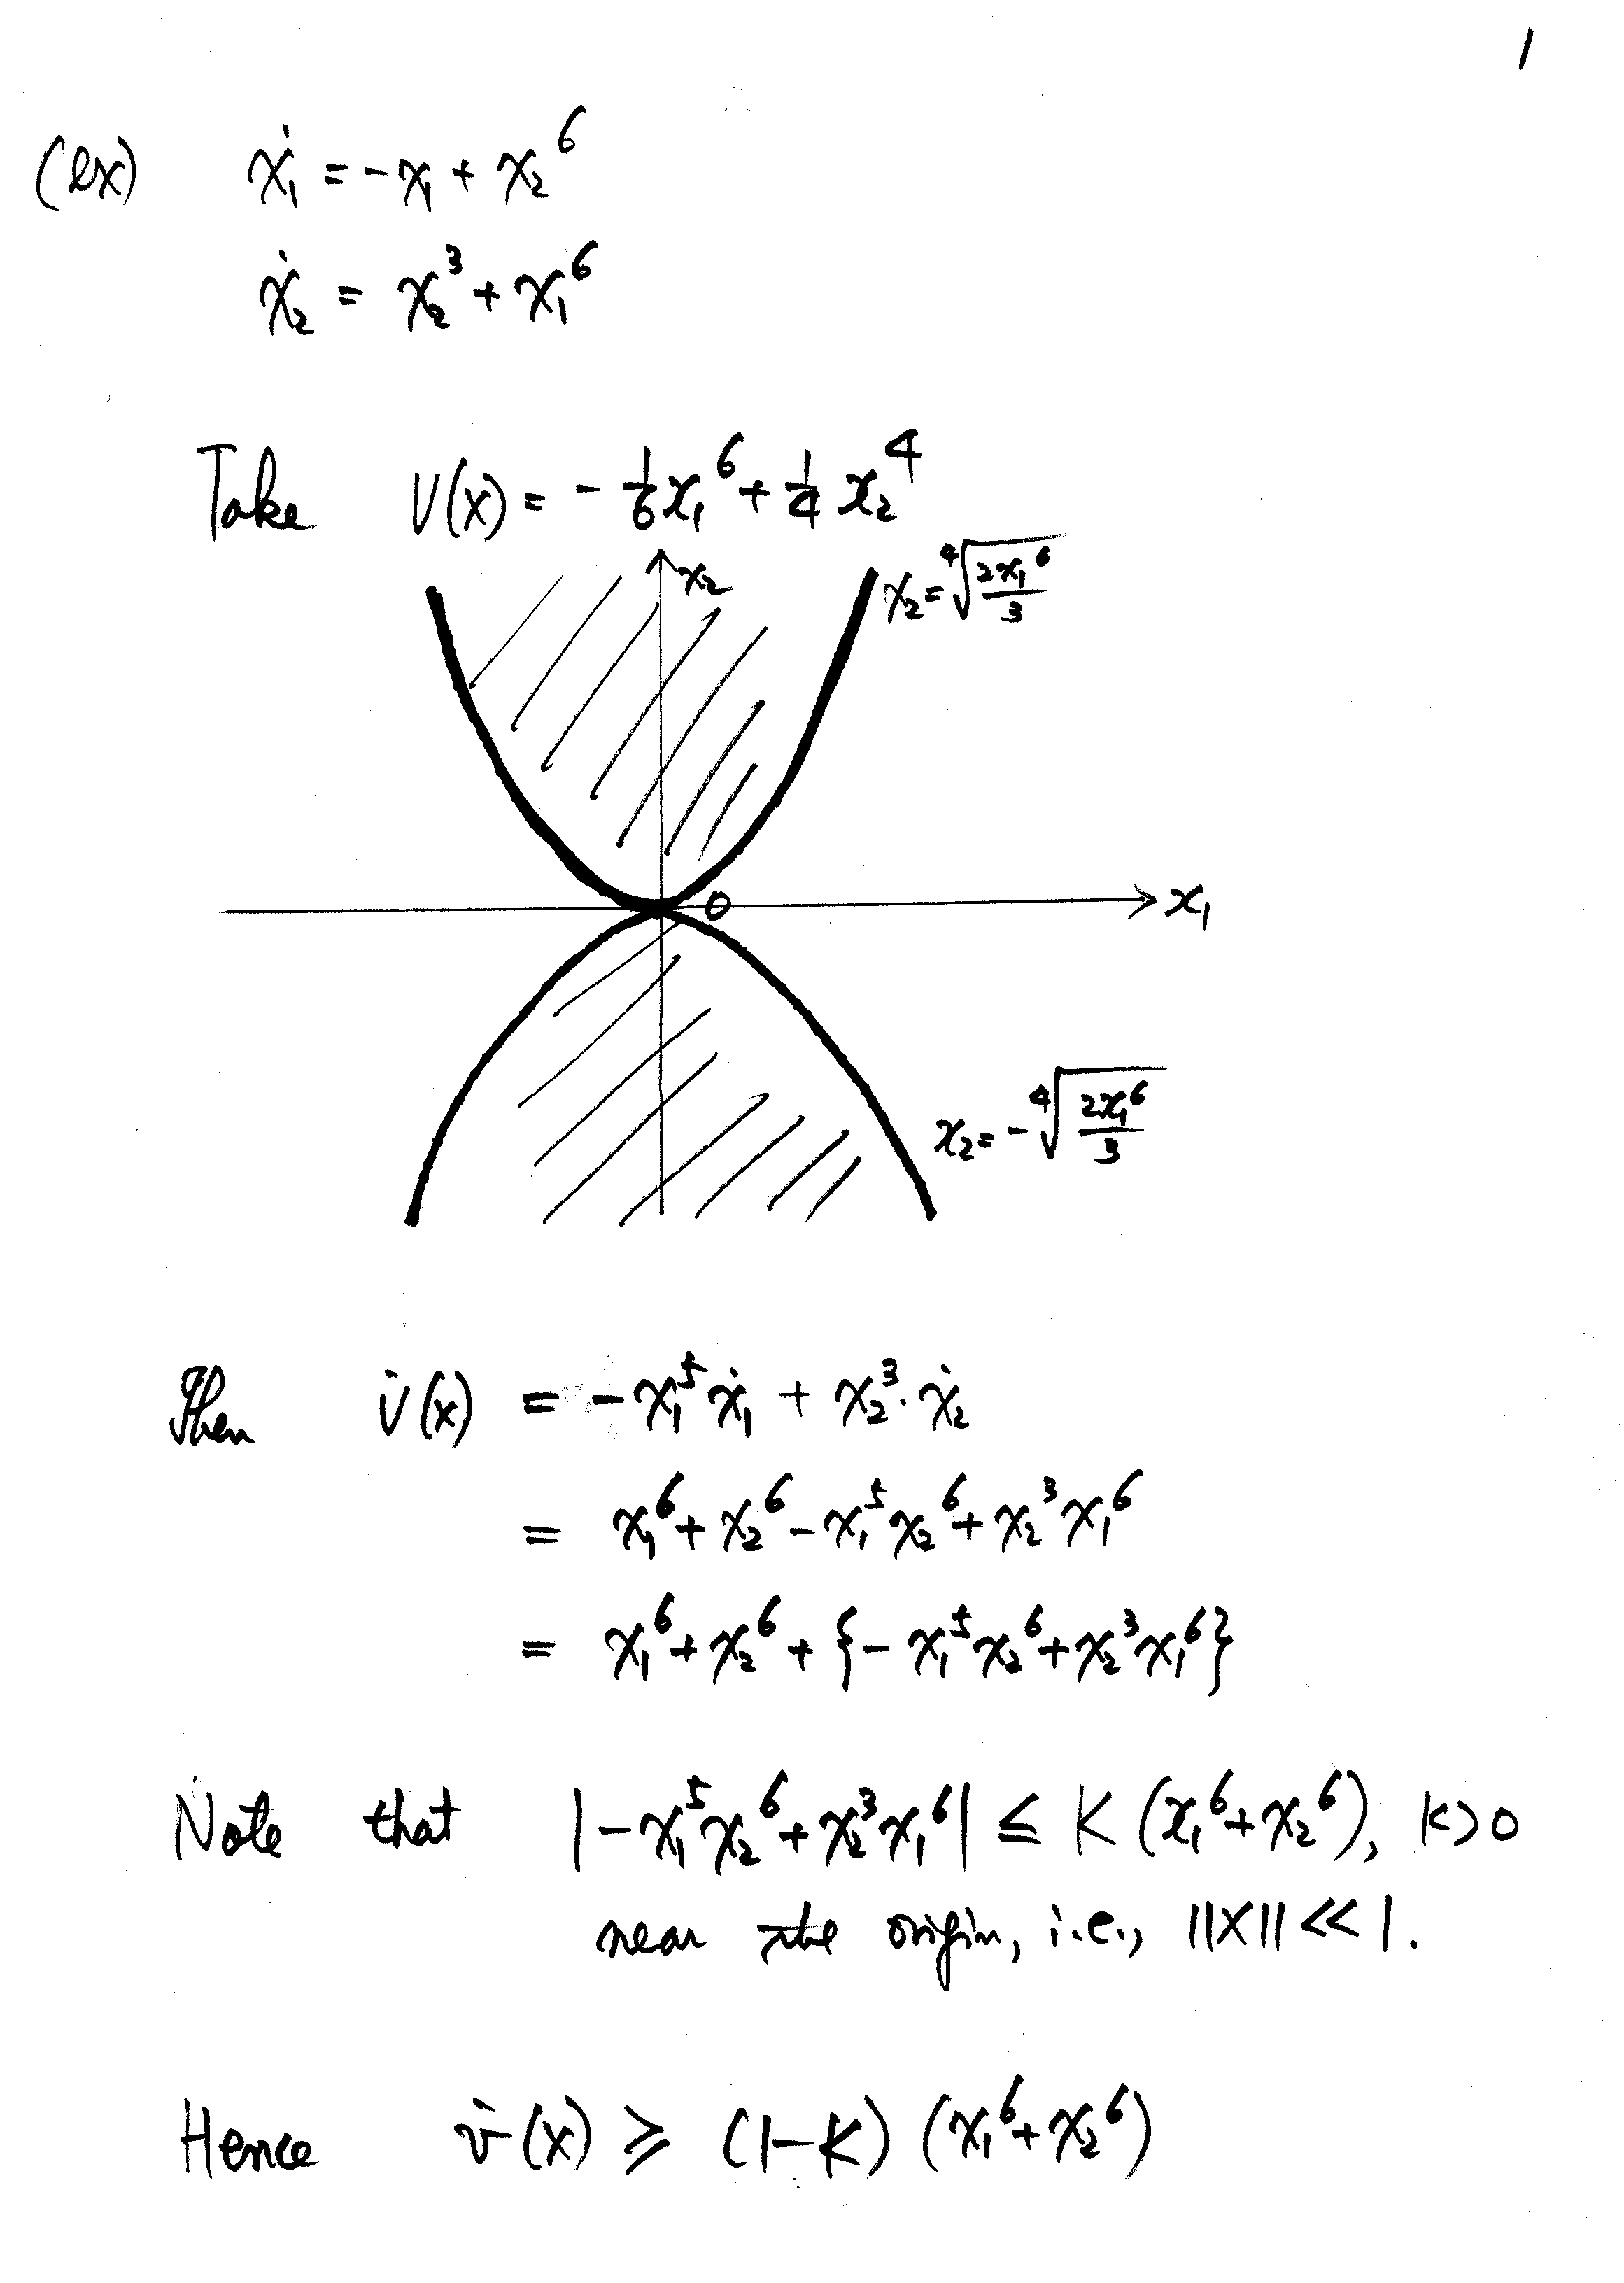 1
(ex) ẋ₁ = -x₁ + x₂⁶
ẋ₂ = x₂³ + x₁⁶
Take V(x) = - 1/6 x₁⁶ + 1/4 x₂⁴
x₂
x₂ = ⁴√(2x₁⁶/3)
0
x₁
x₂ = - ⁴√(2x₁⁶/3)
Then V̇(x) = -x₁⁵ẋ₁ + x₂³·ẋ₂
= x₁⁶ + x₂⁶ - x₁⁵x₂⁶ + x₂³x₁⁶
= x₁⁶ + x₂⁶ + {- x₁⁵x₂⁶ + x₂³x₁⁶}
Note that |-x₁⁵x₂⁶ + x₂³x₁⁶| ≤ K (x₁⁶ + x₂⁶), K>0
near the origin, i.e., ||X|| << 1.
Hence v̇(x) ≥ (1-K) (x₁⁶ + x₂⁶)